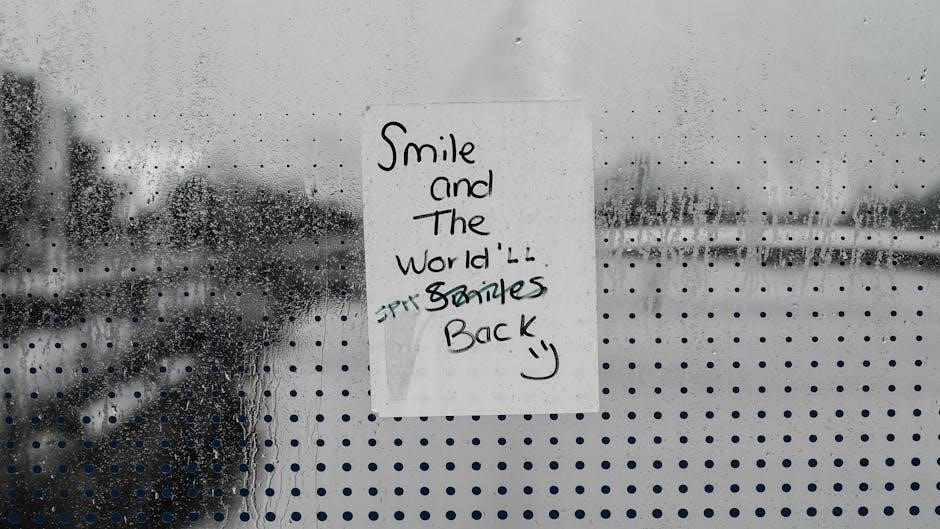 Smile
and
The
World'LL
SPIT Smiles
Back
:)